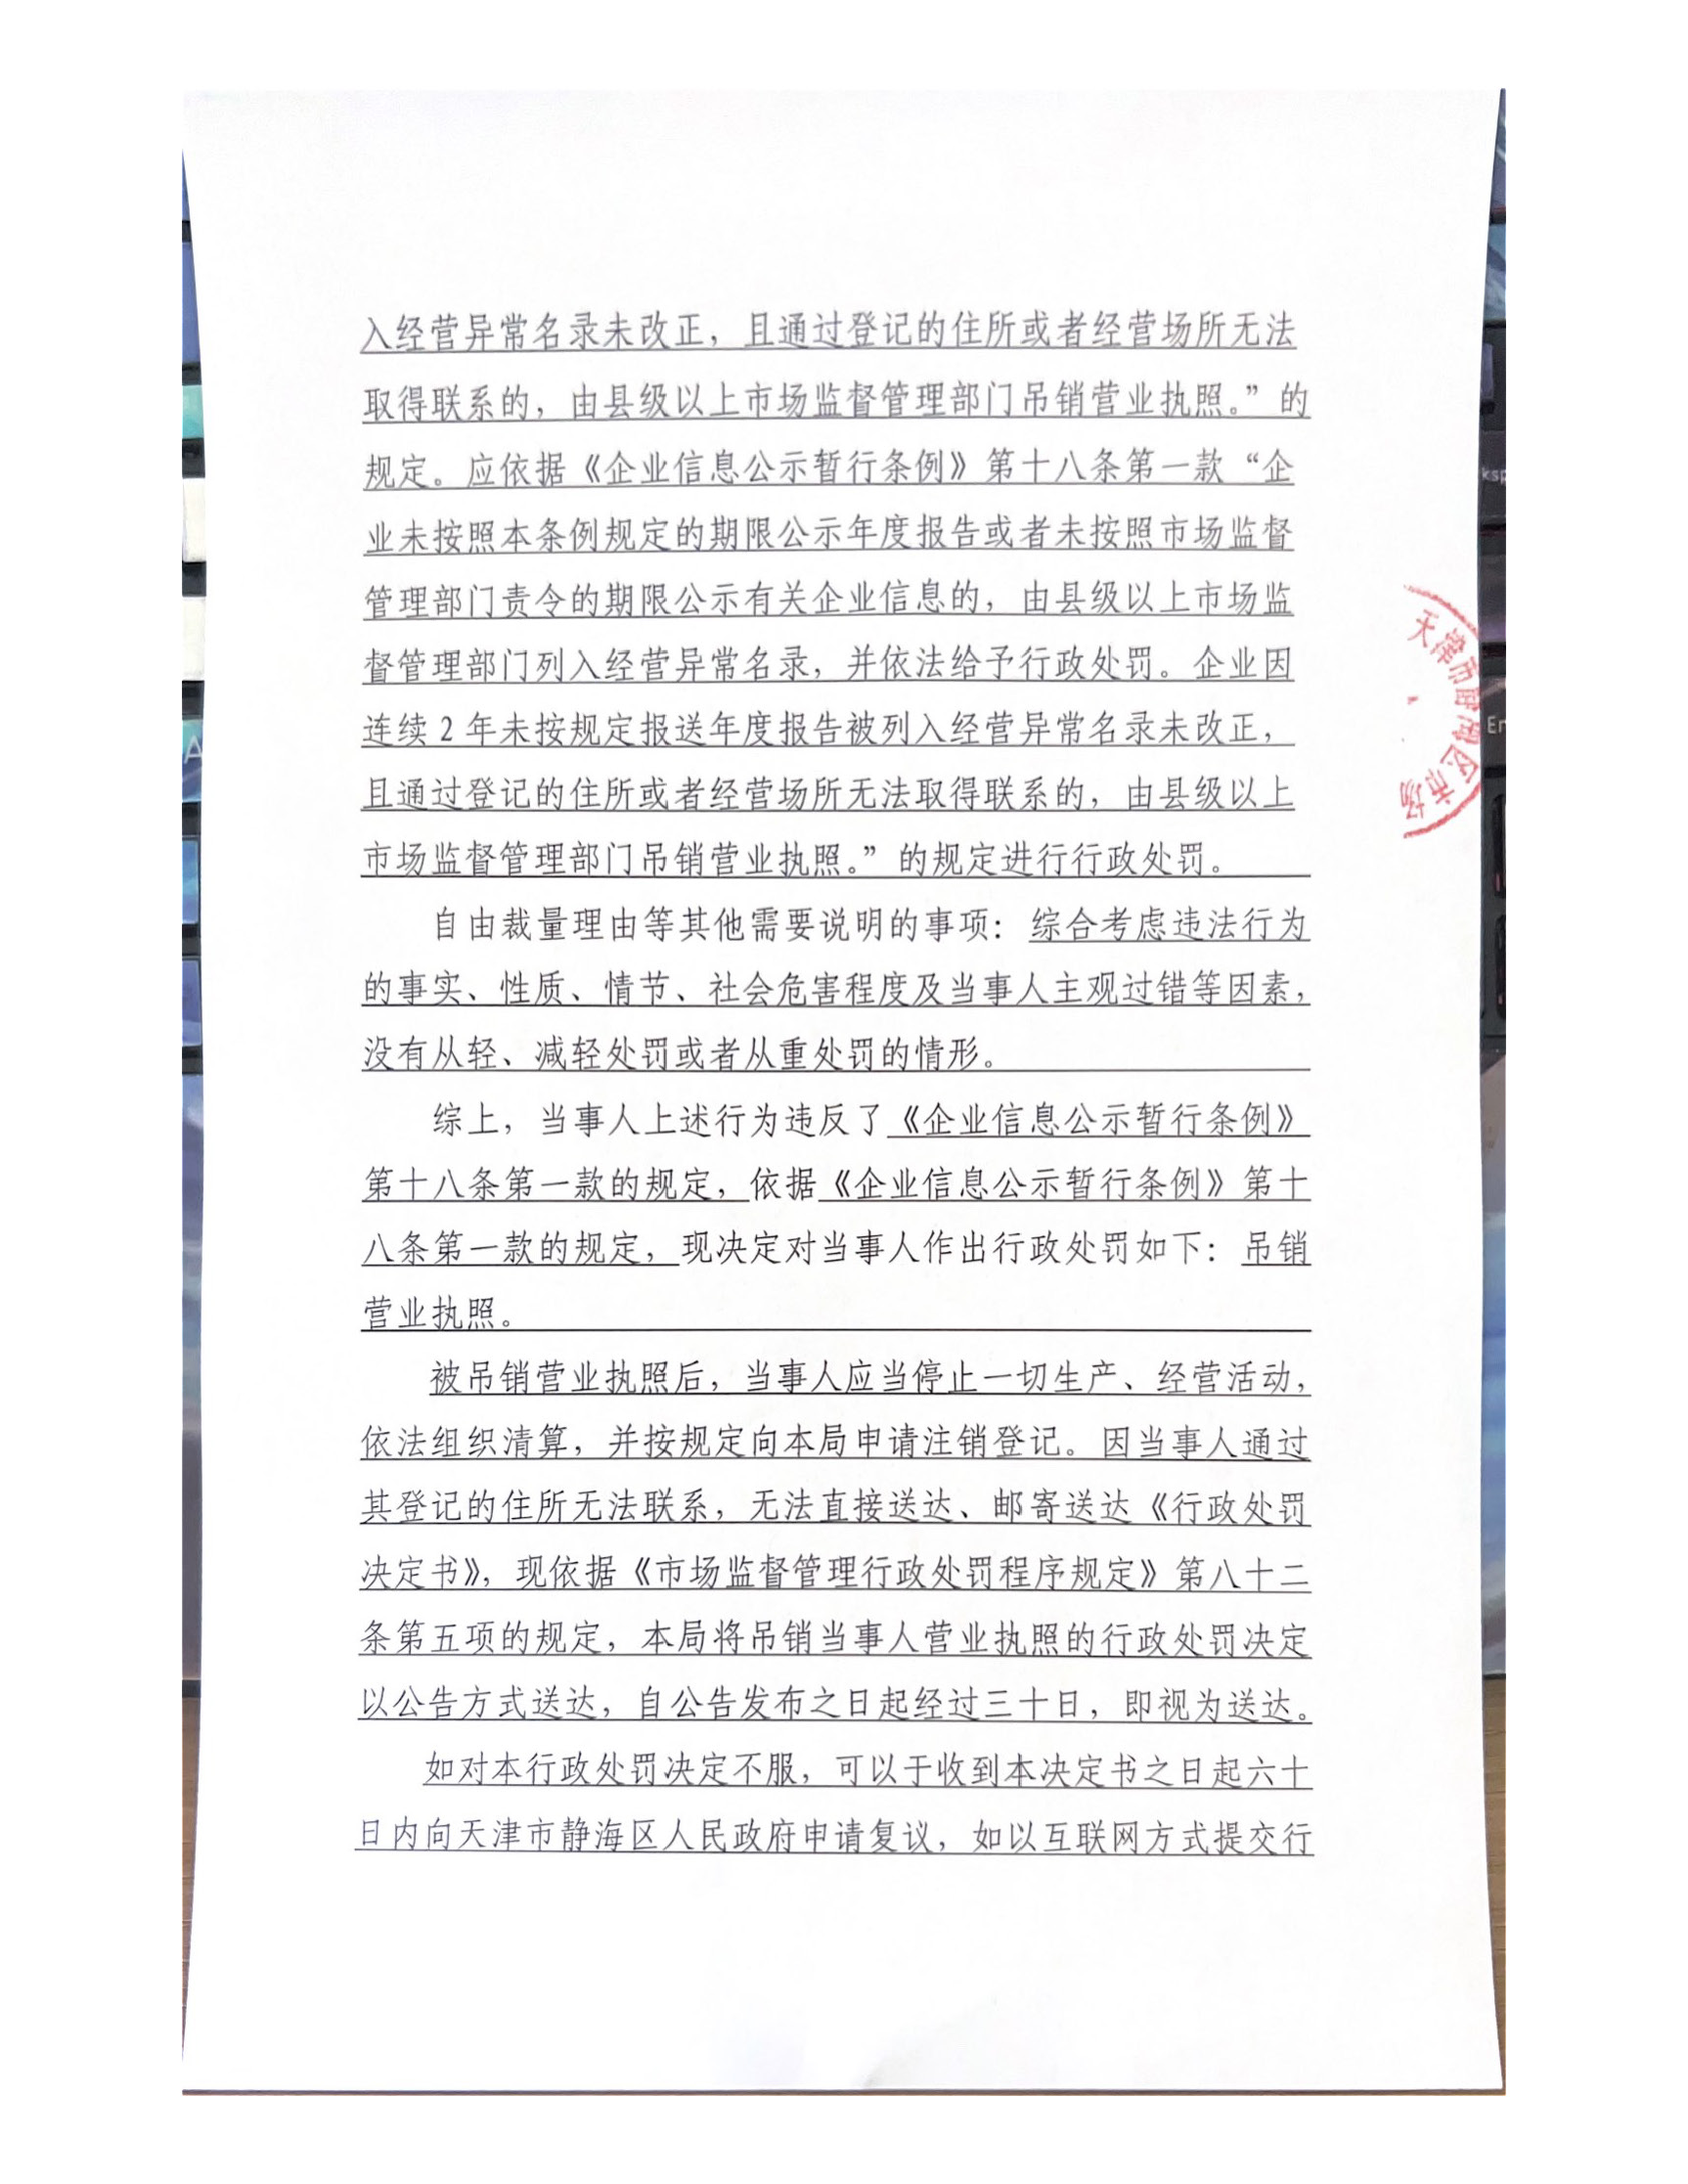 入经营异常名录未改正，且通过登记的住所或者经营场所无法
取得联系的，由县级以上市场监督管理部门吊销营业执照。”的
规定。应依据《企业信息公示暂行条例》第十八条第一款“企
业未按照本条例规定的期限公示年度报告或者未按照市场监督
管理部门责令的期限公示有关企业信息的，由县级以上市场监
督管理部门列入经营异常名录，并依法给予行政处罚。企业因
连续2年未按规定报送年度报告被列入经营异常名录未改正，
且通过登记的住所或者经营场所无法取得联系的，由县级以上
市场监督管理部门吊销营业执照。”的规定进行行政处罚。
自由裁量理由等其他需要说明的事项：综合考虑违法行为
的事实、性质、情节、社会危害程度及当事人主观过错等因素，
没有从轻、减轻处罚或者从重处罚的情形。
综上，当事人上述行为违反了《企业信息公示暂行条例》
第十八条第一款的规定，依据《企业信息公示暂行条例》第十
八条第一款的规定，现决定对当事人作出行政处罚如下：吊销
营业执照。
被吊销营业执照后，当事人应当停止一切生产、经营活动，
依法组织清算，并按规定向本局申请注销登记。因当事人通过
其登记的住所无法联系，无法直接送达、邮寄送达《行政处罚
决定书》，现依据《市场监督管理行政处罚程序规定》第八十二
条第五项的规定，本局将吊销当事人营业执照的行政处罚决定
以公告方式送达，自公告发布之日起经过三十日，即视为送达。
如对本行政处罚决定不服，可以于收到本决定书之日起六十
日内向天津市静海区人民政府申请复议，如以互联网方式提交行
天津市静海区市场